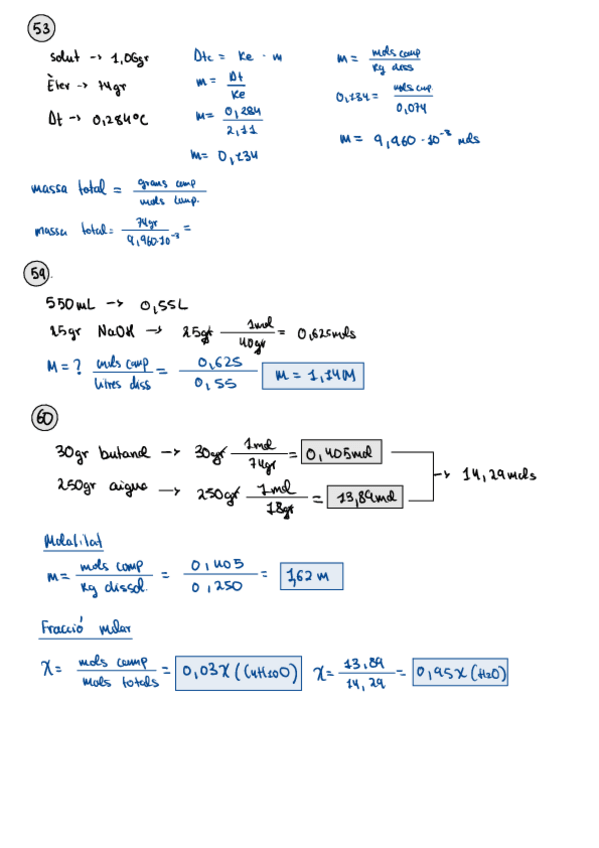 53
solut → 1,06gr
Èter → 74gr
Δt → 0,284ºC
Δtc = Ke · m
m = Δt / Ke
m = 0,284 / 2,11
m = 0,134
m = mols comp / Kg diss
0,134 = mols cmp. / 0,074
m = 9,960·10⁻³ mols
massa total = grams comp / mols comp.
massa total = 74gr / 9,960·10⁻³ =
59.
550mL → 0,55L
25gr NaOH → 25gr 1mol / 40gr = 0,625mols
M = ? mols comp / litres diss = 0,625 / 0,55 M = 1,14M
60
30gr butanol → 30gr 1mol / 74gr = 0,405mol
250gr aigua → 250gr 1mol / 18gr = 13,89mol
→ 14,29mols
Molalitat
m = mols comp / Kg dissol. = 0,405 / 0,250 = 1,62 m
Fracció molar
X = mols comp / mols totals = 0,03X (C4H10O) X = 13,89 / 14,29 = 0,95X (H2O)